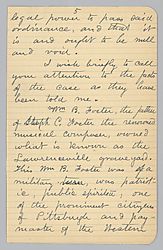 5
legal power to pass said
ordinance, and that it
is and ought to be null
and void.
I wish briefly to call
your attention to the facts
of the case as they have
been told me.
Wm B. Foster, the father
of C. Foster the renowned
musical composer, owned
what is known as the
Lawrenceville graveyard.
This Wm B. Foster was of a
military turn, was patriotic
i.e. public spirited, one
of the prominent citizens
of Pittsburgh and pay-
master of the Western